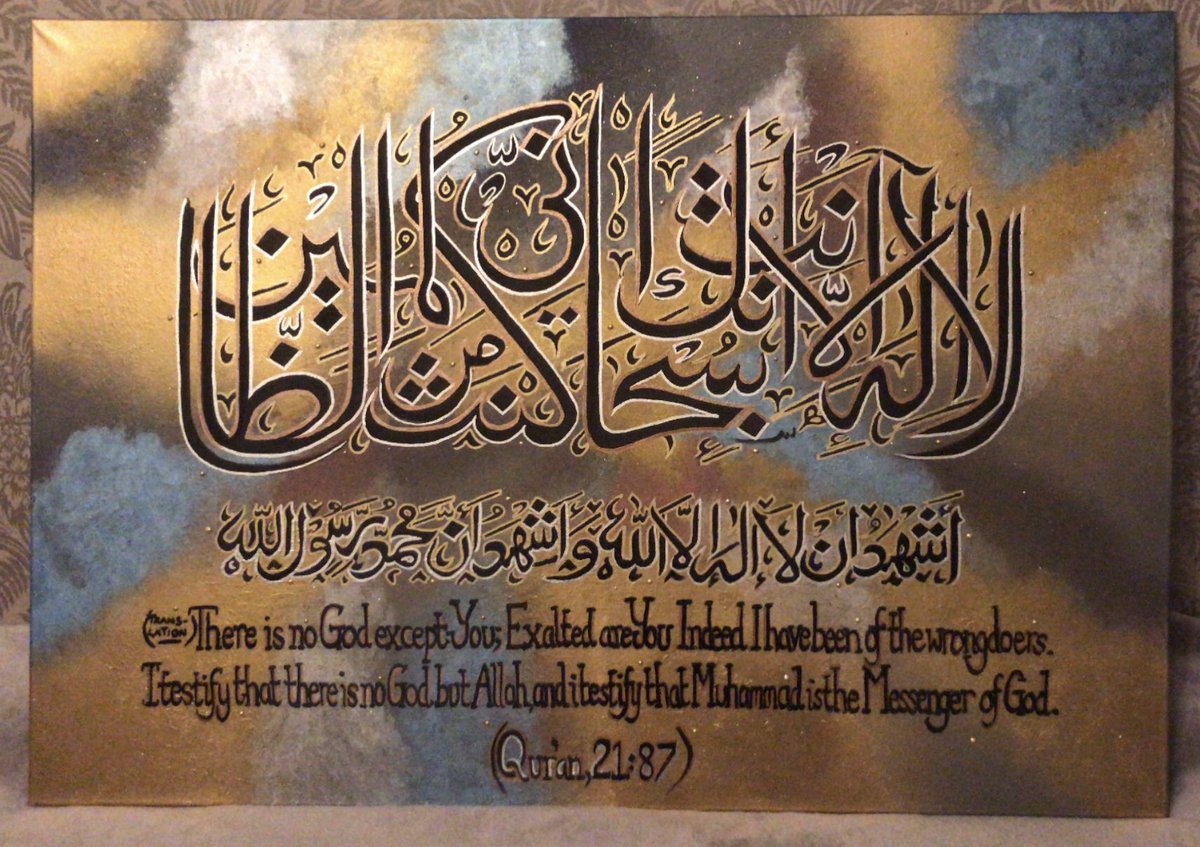 لا إله إلا أنت سبحانك إني كنت من الظالمين
أشهد أن لا إله إلا الله و أشهد أن محمد رسول الله
(TRANS-LATION) There is no God except You; Exalted are You Indeed I have been of the wrongdoers.
I testify that there is no God but Allah, and i testify that Muhammad is the Messenger of God.
(Qur'an, 21:87)